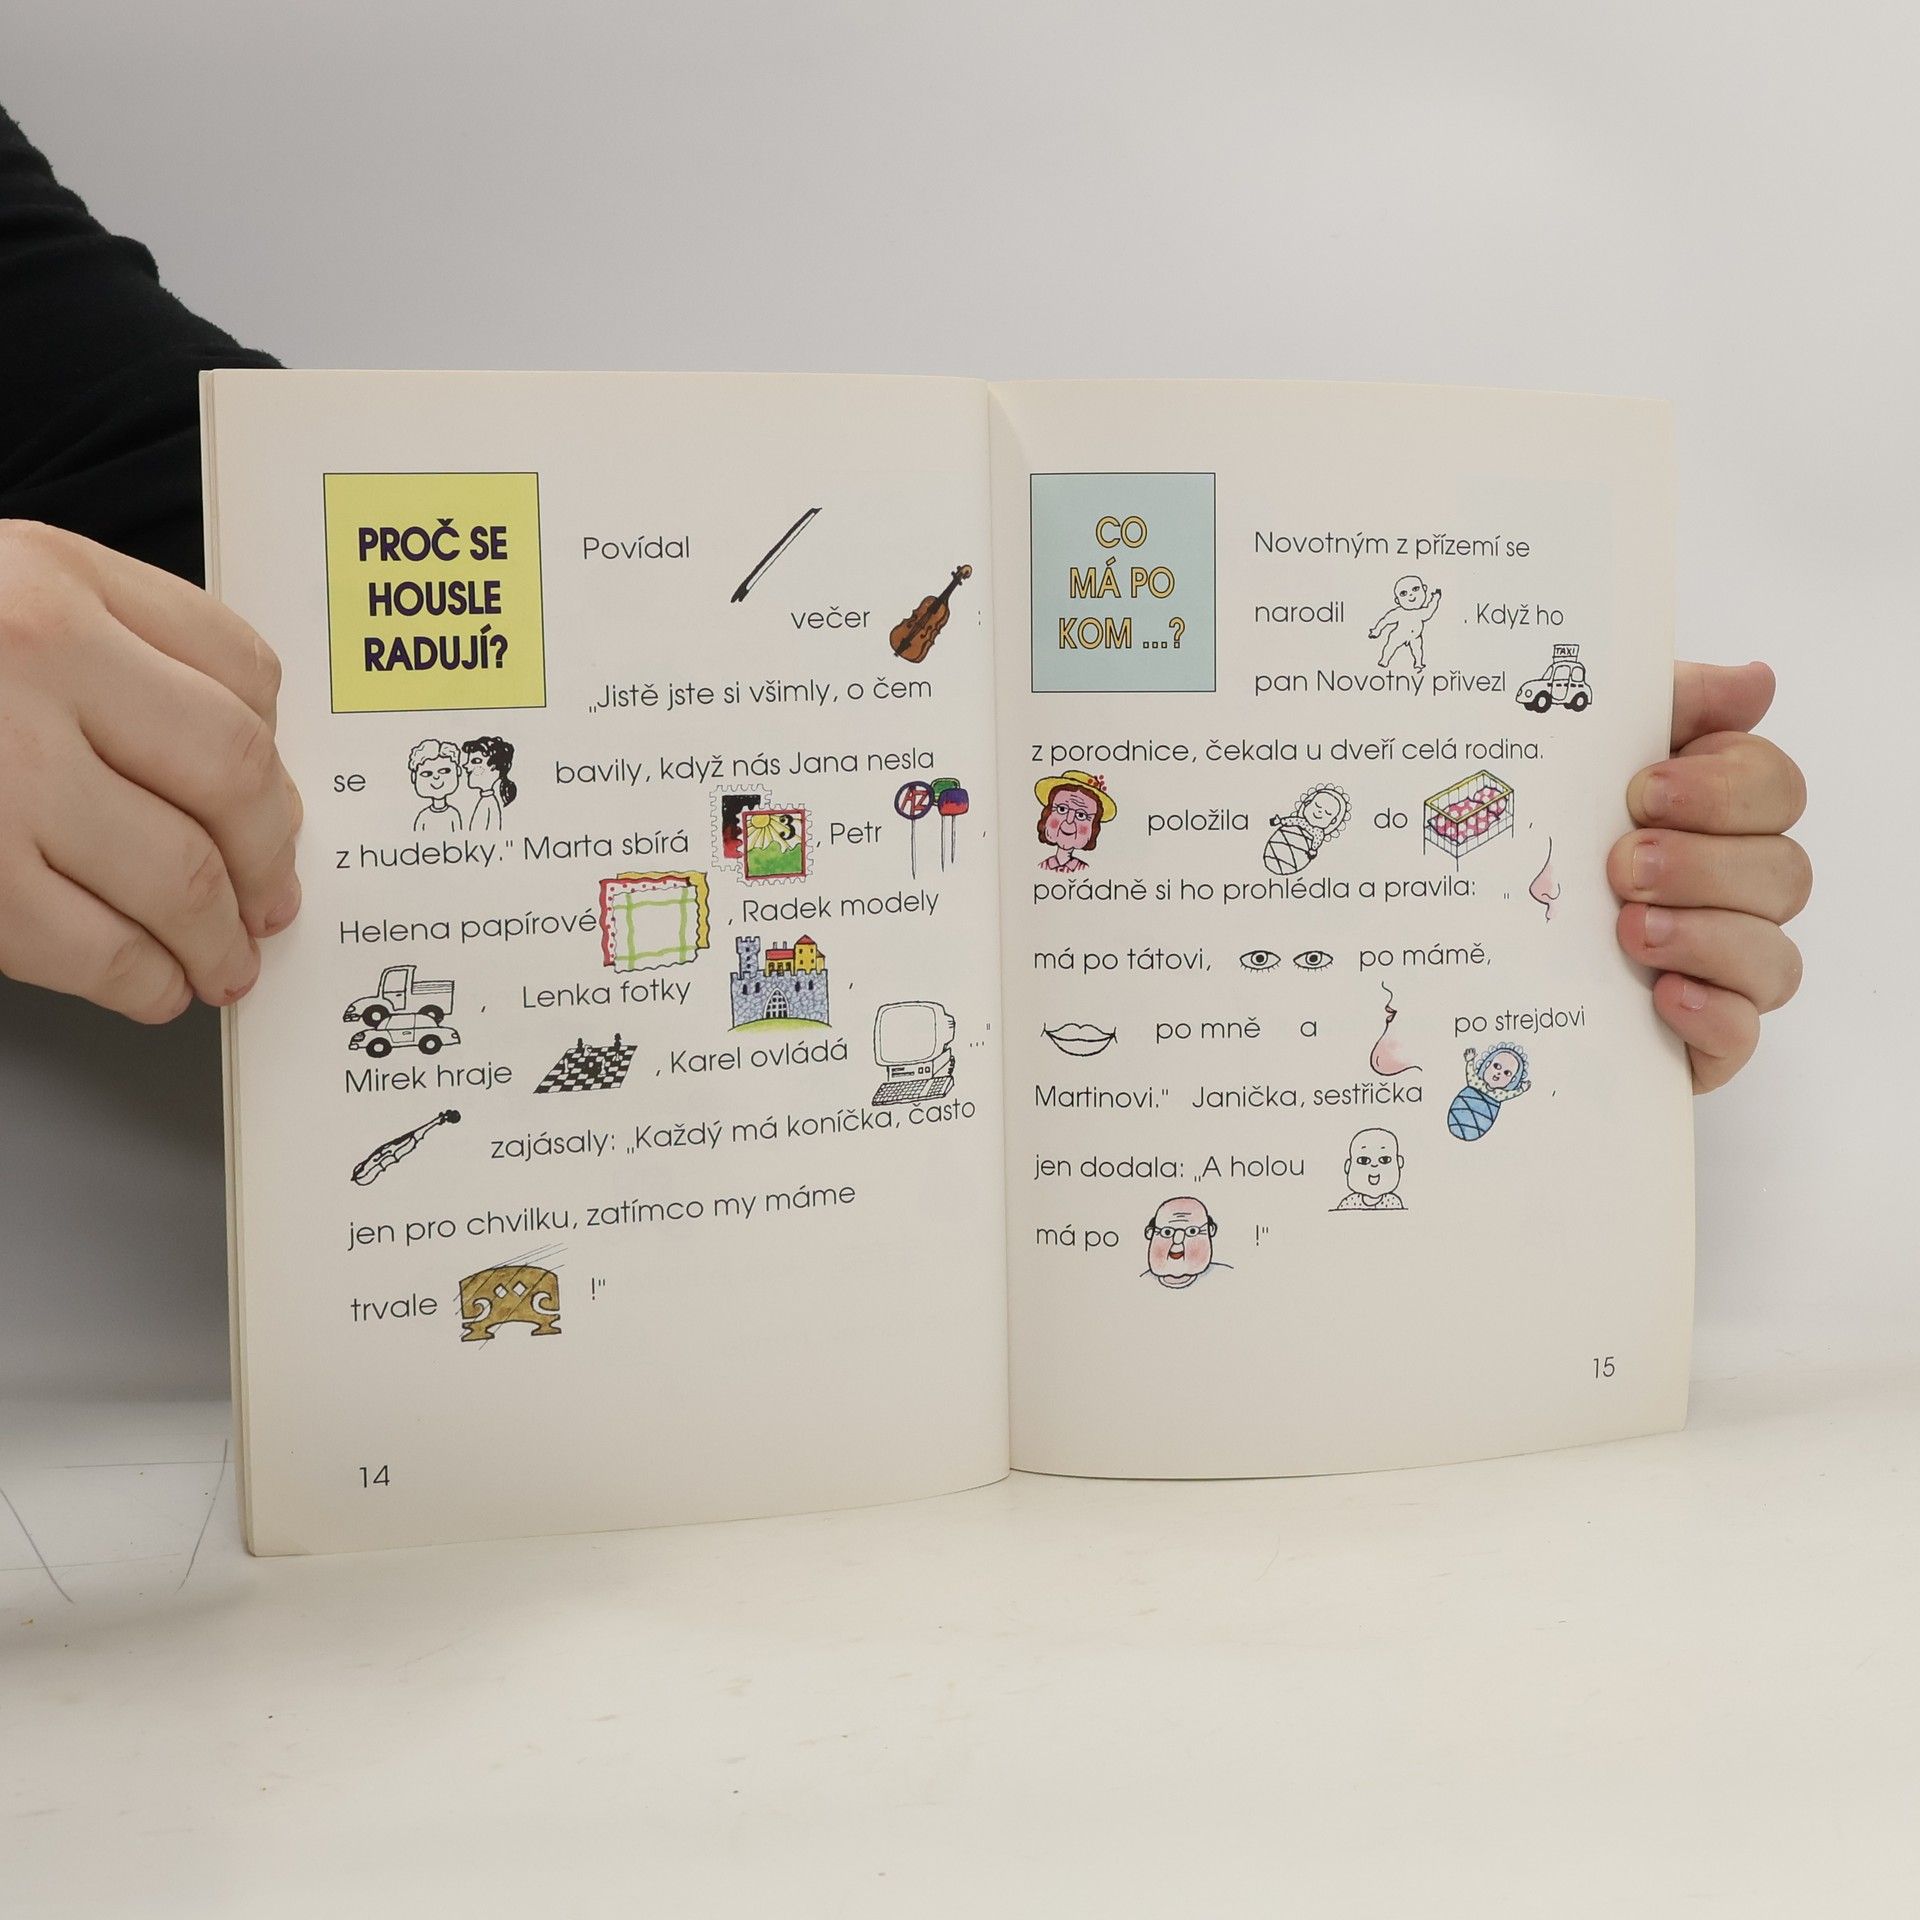 PROČ SE
HOUSLE
RADUJÍ?
Povídal
večer :
„Jistě jste si všimly, o čem
se bavily, když nás Jana nesla
z hudebky." Marta sbírá , Petr ,
Helena papírové , Radek modely
, Lenka fotky ,
Mirek hraje , Karel ovládá ..."
zajásaly: „Každý má koníčka, často
jen pro chvilku, zatímco my máme
trvale !"
14
CO
MÁ PO
KOM ...?
Novotným z přízemí se
narodil . Když ho
pan Novotný přivezl TAXI
z porodnice, čekala u dveří celá rodina.
položila do ,
pořádně si ho prohlédla a pravila: „
má po tátovi, po mámě,
po mně a po strejdovi
Martinovi." Janička, sestřička ,
jen dodala: „A holou
má po !"
15
AZ
3